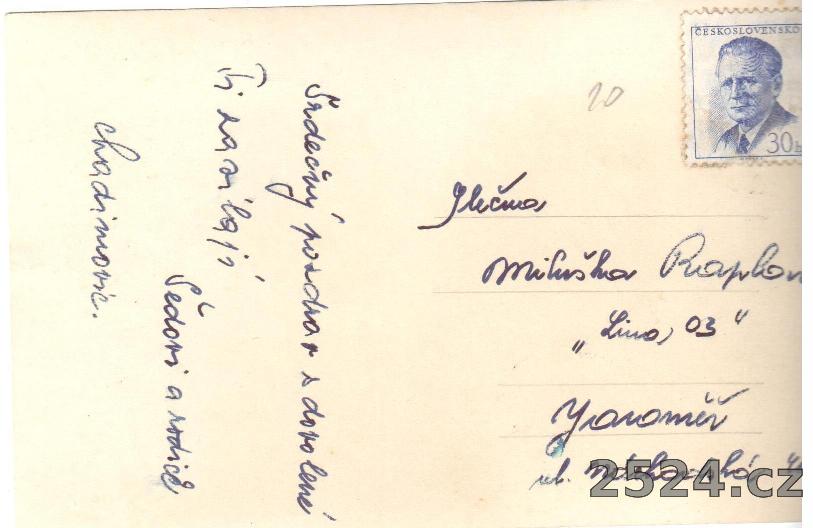 Srdečný pozdrav z dovolené
Ti zasílají
Šédovi a rodiče
Chadimovic.
ČESKOSLOVENSKO
30h
20
Slečna
Miluška
"Lina, 03"
Jaroměř
ul.
2524.cz